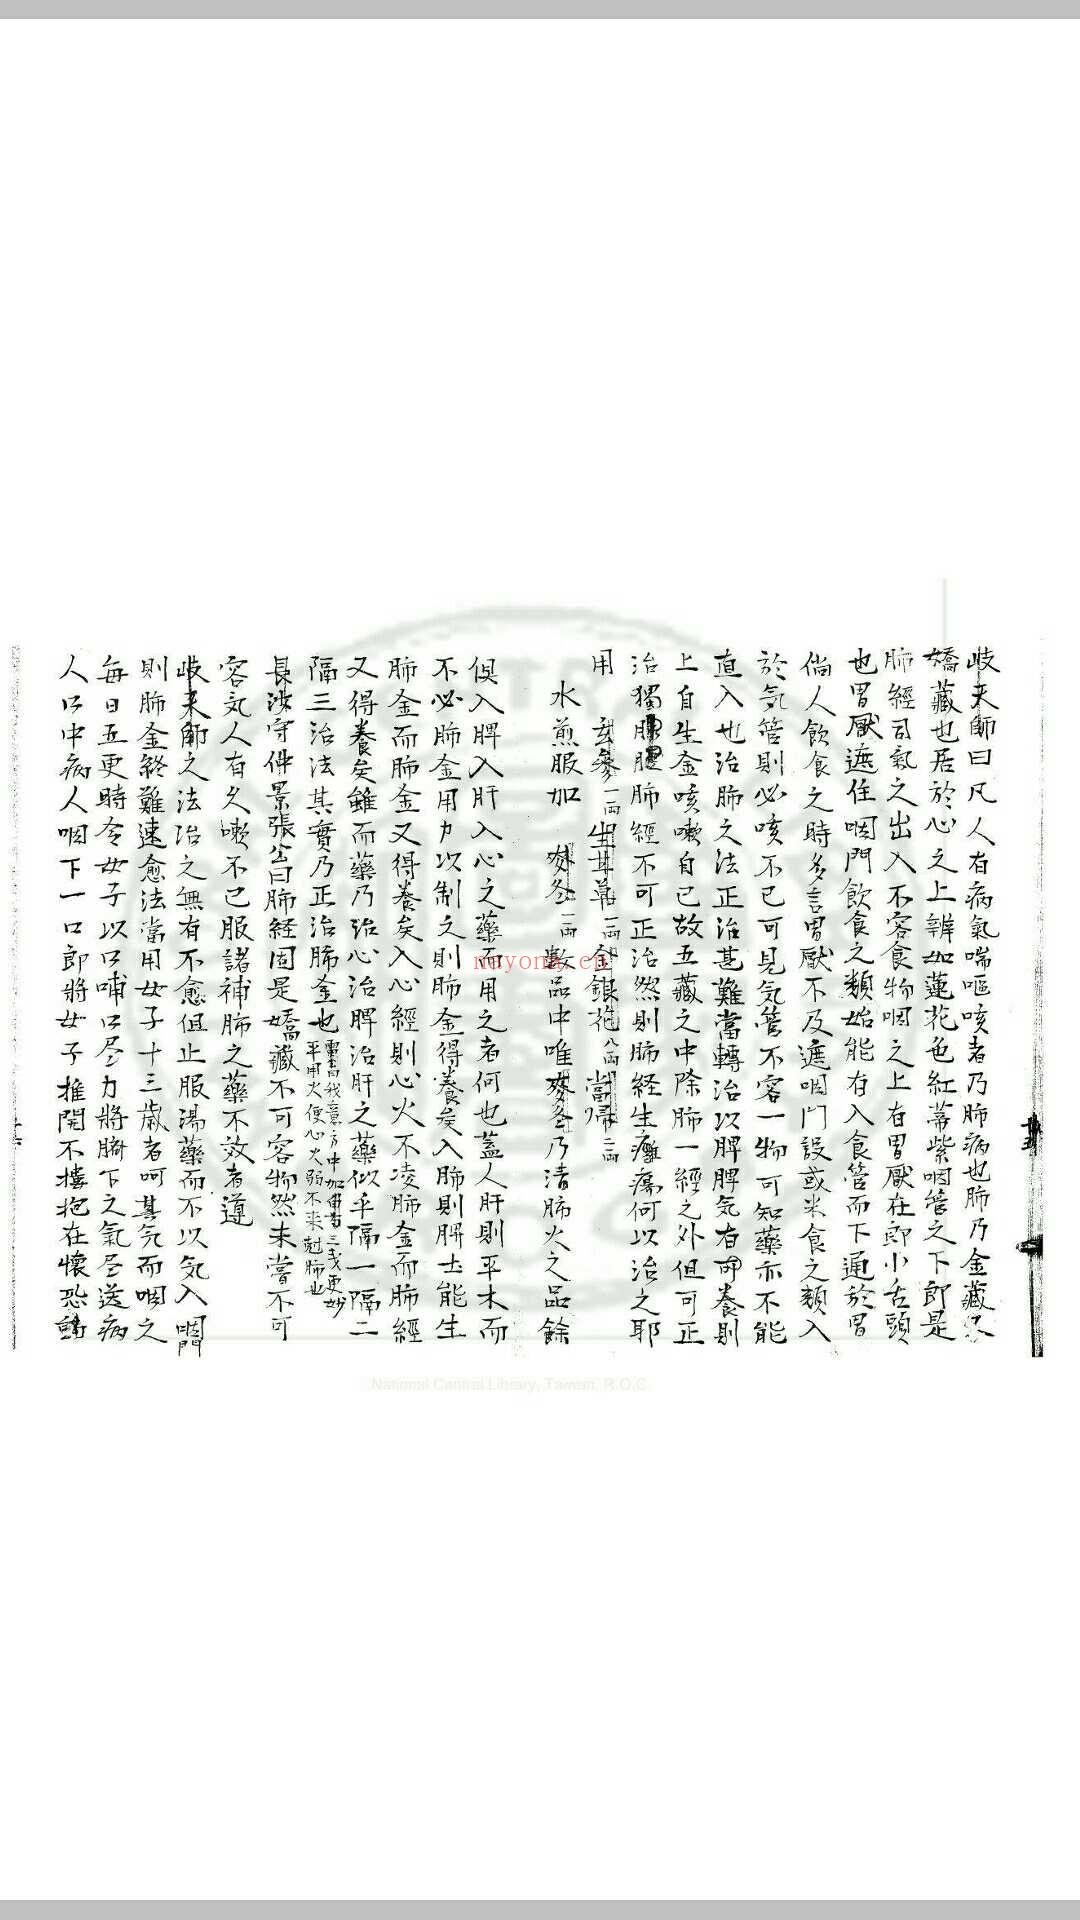 岐天師曰凡人有病氣喘嘔咳者乃肺病也肺乃金藏又
嬌藏也居於心之上辨如蓮花色紅蒂紫咽管之下即是
肺經司氣之出入不容食物咽之上有胃厭在即小舌頭
也胃厭遮住咽門飲食之類始能有入食管而下通於胃
倘人飲食之時多言胃厭不及遮咽門設或米食之類入
於気管則必咳不已可見気管不容一物可知藥亦不能
直入也治肺之法正治甚難當轉治以脾脾気有養則
上自生金咳嗽自已故五藏之中除肺一經之外但可正
治獨肺經不可正治然則肺経生癰瘍何以治之耶
用 玄參一兩 生甘草一兩 金銀花八兩 當歸二兩
水煎服加 麥冬一兩 數品中唯麥冬乃清肺火之品餘
俱入脾入肝入心之藥而用之者何也蓋人肝則平木而
不必肺金用力以制之則肺金得養矣入肺則脾土能生
肺金而肺金又得養矣入心經則心火不凌肺金而肺經
又得養矣雖而藥乃治心治脾治肝之藥似乎隔一隔二
隔三治法其實乃正治肺金也 雷公曰我意方中加三戔更妙
平用火便心火弱不来尅肺也
長沙守仲景張公曰肺経固是嬌藏不可容物然未嘗不可
容気人有久嗽不已服諸補肺之藥不效者遵
岐天師之法治之無有不愈但止服湯藥而不以気入咽門
則肺金終難速愈法當用女子十三歲者呵其気而咽之
每日五更時令女子以口哺口尽力將臍下之氣尽送病
人口中病人咽下一口即將女子推開不摟抱在懷恐動
nayona.cn
National Central Library, Taiwan, R.O.C.